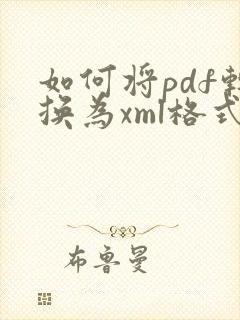 如何将pdf转
换为xml格式
布鲁曼